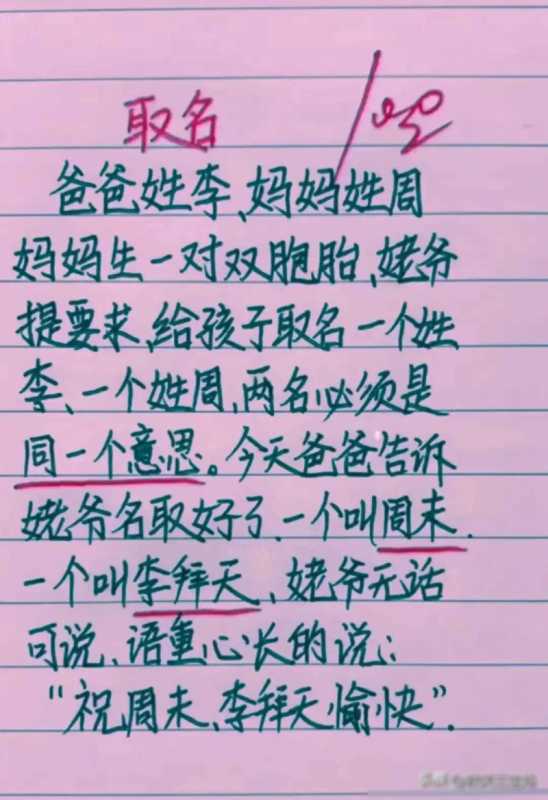 取名
爸爸姓李、妈妈姓周
妈妈生一对双胞胎,姥爷
提要求,给孩子取名一个姓
李、一个姓周,两名必须是
同一个意思。今天爸爸告诉
姥爷名取好了.一个叫周末.
一个叫李拜天、姥爷无话
可说、语重心长的说:
“祝周末、李拜天愉快”.